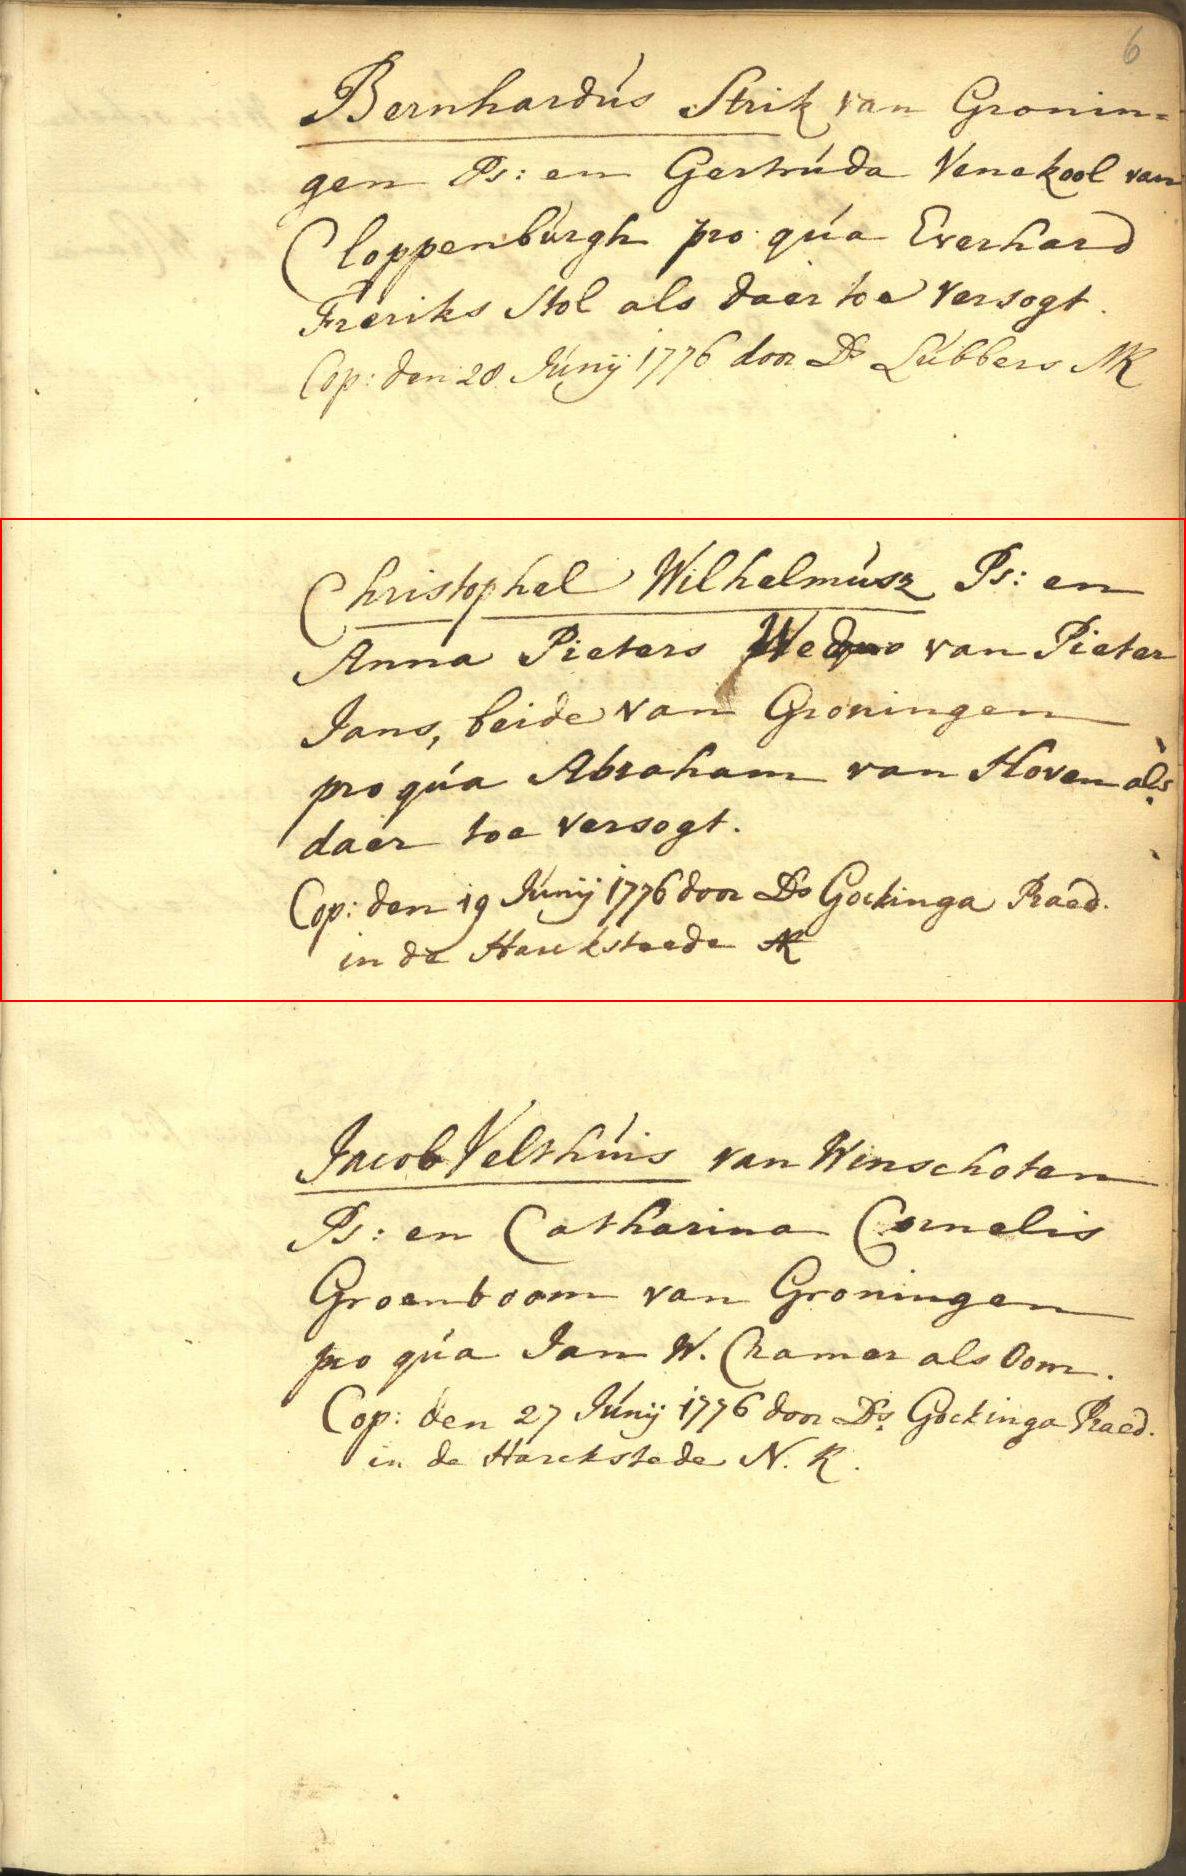 6
Bernhardús Strik van Gronin=
gen Ps: en Gertrúda Venekool van
Cloppenbúrgh pro qúa Everhard
Freriks Stol als daer toe versogt.
Cop: den 28 Júnÿ 1776 door Ds Lúbbers NK
Christophel Wilhelmúsz Ps: en
Anna Pieters Wedúe van Pieter
Jans, beide van Groningen
pro qúa Abraham van Hoven als
daer toe versogt.
Cop: den 19 Júnÿ 1776 door Ds Gockinga Praed.
in de Harcksteede NK
Jacob Velthúis van Winschoten
Ps: en Catharina Cornelis
Groenboom van Groningen
pro qúa Jan W. Cramer als Oom.
Cop: den 27 Júnÿ 1776 door Ds. Gockinga Praed.
in de Harckstede N. K.